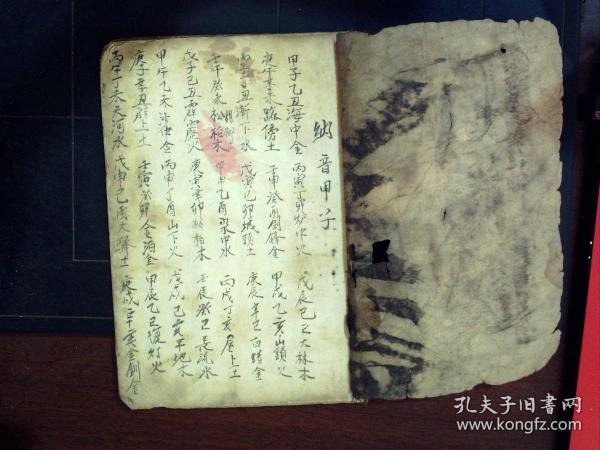 纳音甲子
甲子乙丑海中金 丙寅丁卯炉中火 戊辰己巳大林木
庚午辛未路傍土 壬申癸酉劍鋒金 甲戌乙亥山頭火
丙子丁丑澗下水 戊寅己卯城頭土 庚辰辛巳白蜡金
壬午癸未松柏木 甲申乙酉泉中水 丙戌丁亥屋上土
戊子己丑霹靂火 庚寅辛卯松柏木 壬辰癸巳長流水
甲午乙未沙中金 丙申丁酉山下火 戊戌己亥平地木
庚子辛丑壁上土 壬寅癸卯金泊金 甲辰乙巳復灯火
丙午丁未天河水 戊申己酉大驛土 庚戌辛亥金釧金
孔夫子旧书网
www.kongfz.com